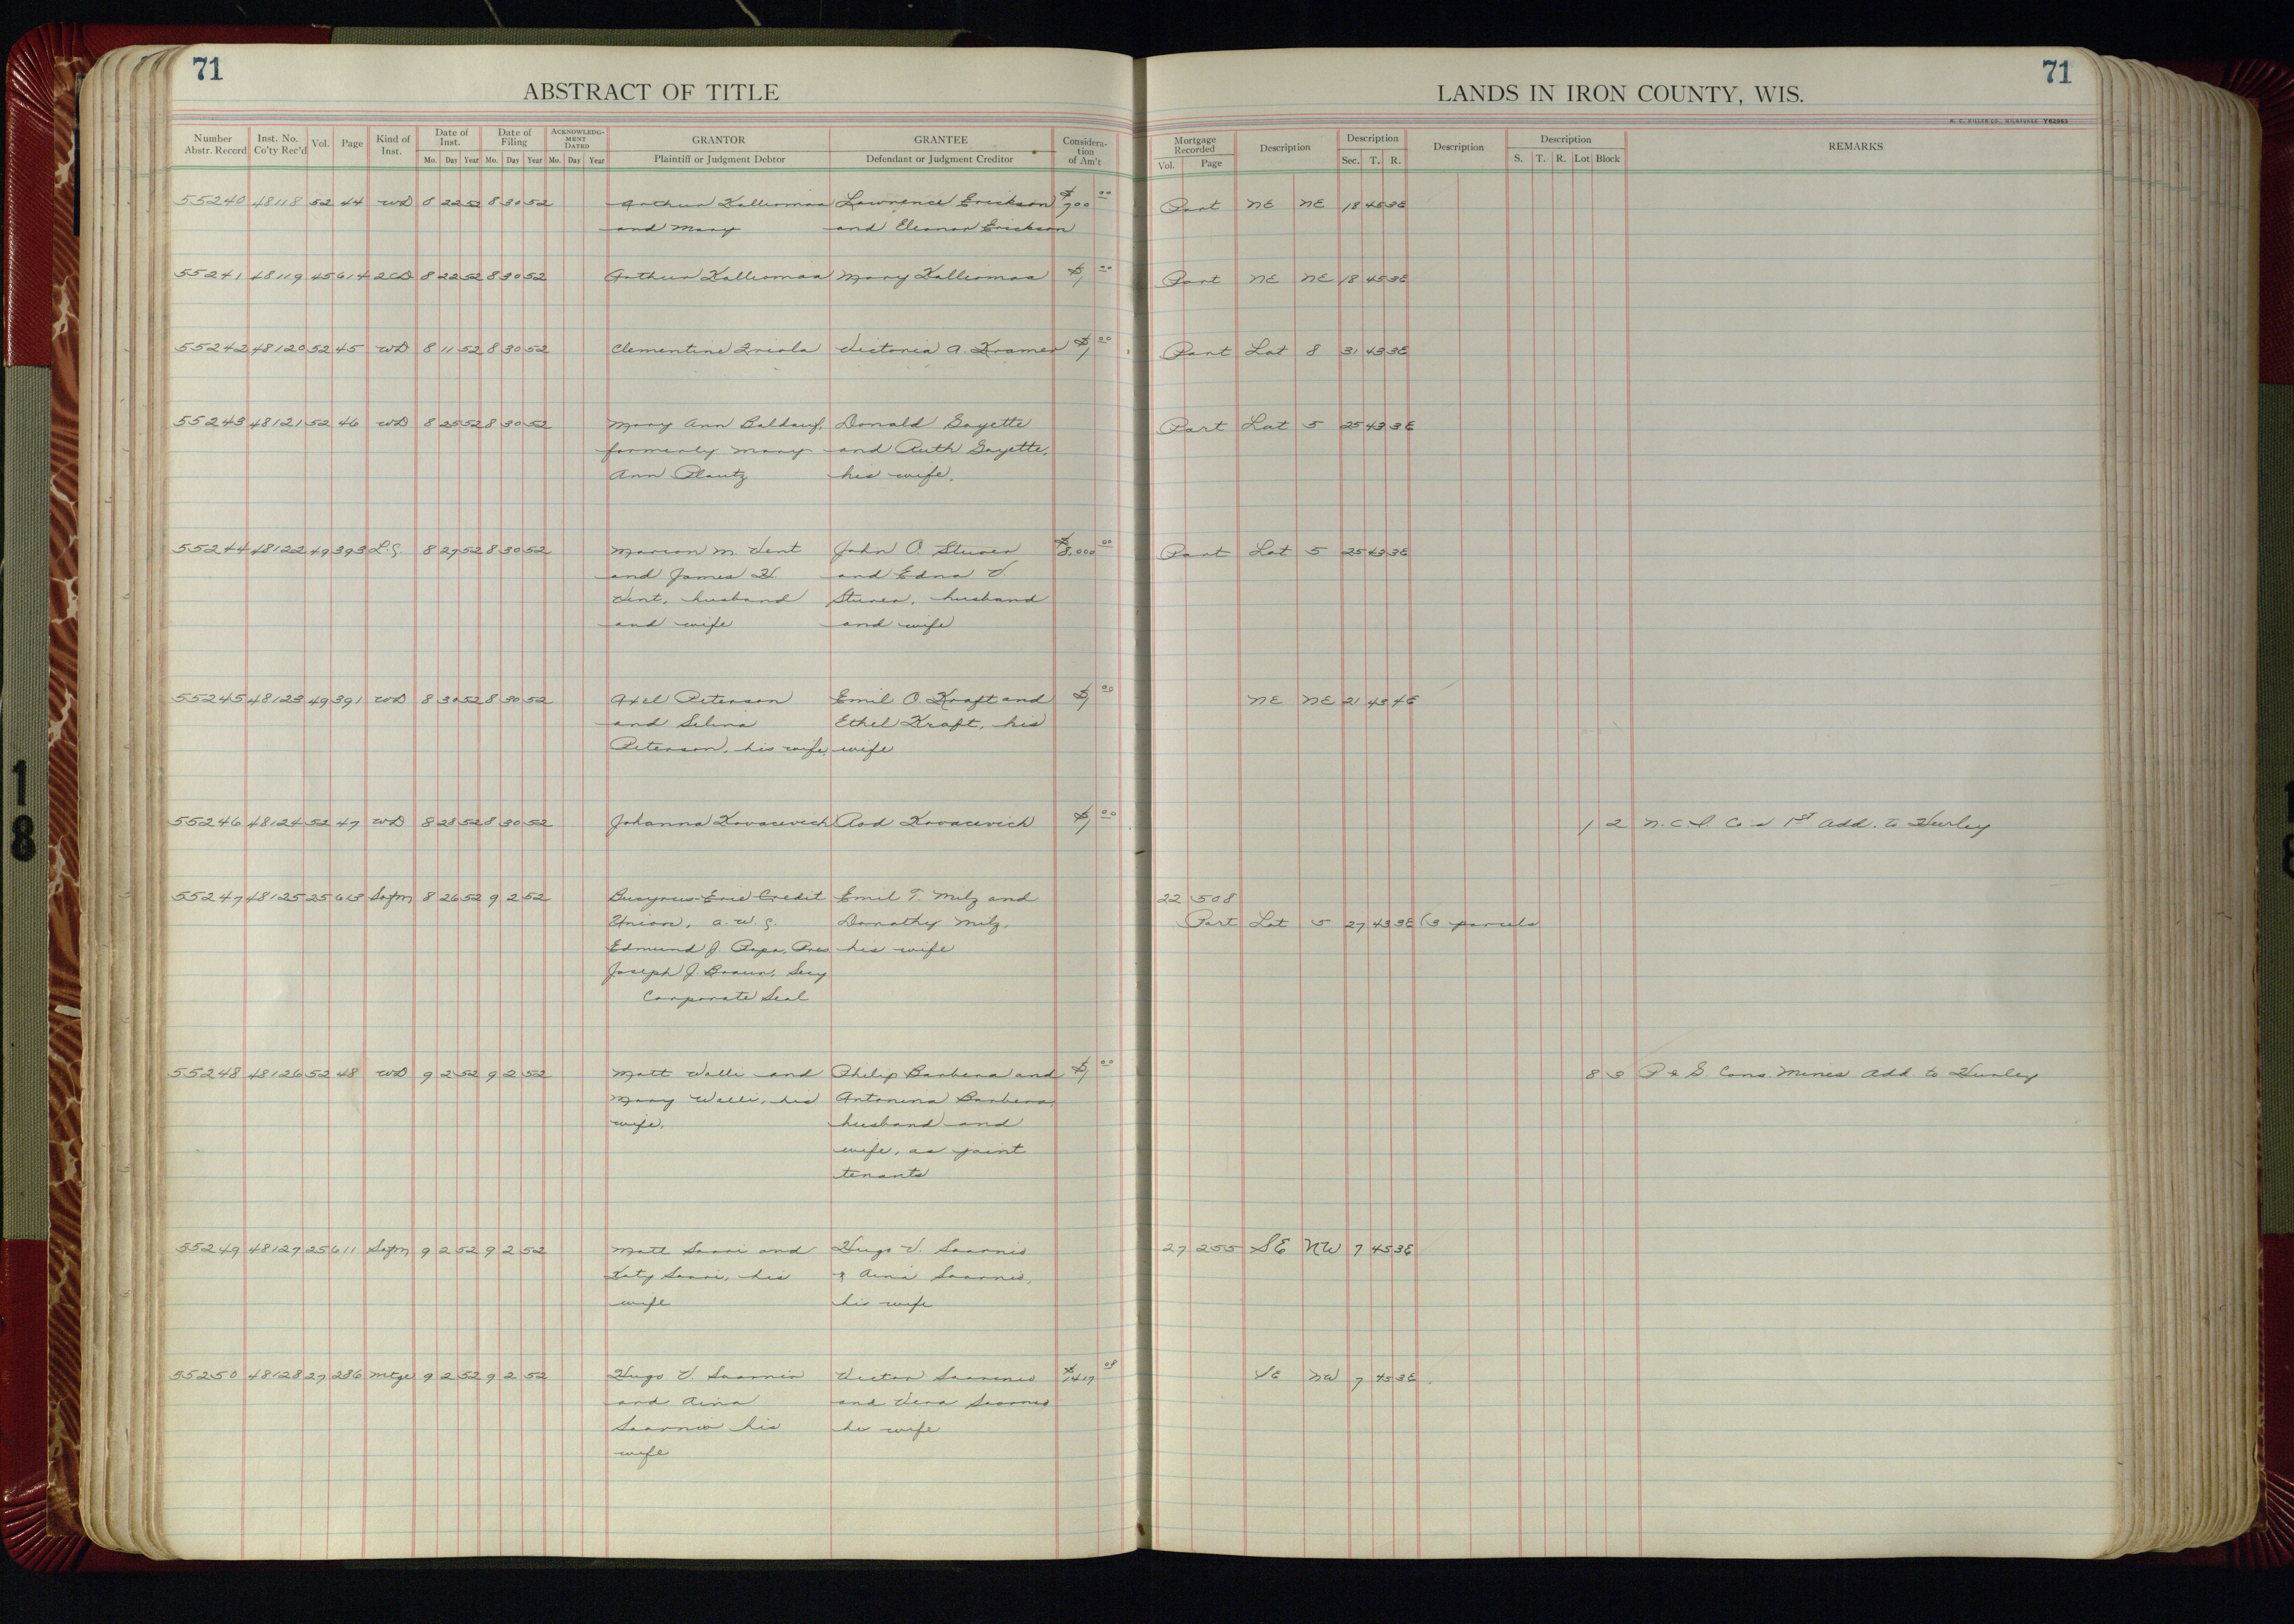 71
ABSTRACT OF TITLE
LANDS IN IRON COUNTY, WIS.
71
Number Abstr. Record Inst. No. Co'ty Rec'd Vol. Page Kind of Inst. Date of Inst. Mo. Day Year Date of Filing Mo. Day Year ACKNOWLEDGMENT DATED Mo. Day Year GRANTOR Plaintiff or Judgment Debtor GRANTEE Defendant or Judgment Creditor Consideration of Am't
Mortgage Recorded Vol. Page Description Description Sec. T. R. Description Description S. T. R. Lot Block REMARKS
55240 48118 52 44 WD 8 22 52 8 30 52 Arthur Kalliomaa Lawrence Erickson $700 00 Part NE NE 18 45 3E
and Mary and Eleanor Erickson
55241 48119 45 614 2CD 8 22 52 8 30 52 Arthur Kalliomaa Mary Kalliomaa $1 00 Part NE NE 18 45 3E
55242 48120 52 45 WD 8 11 52 8 30 52 Clementine Victoria A. Kramer $1 00 Part Lot 8 31 43 3E
55243 48121 52 46 WD 8 25 52 8 30 52 Mary Ann Baldauf, Donald Goyette Part Lot 5 25 43 3E
formerly Mary and Ruth Goyette,
Ann Plautz his wife.
55244 48122 49 393 L.C. 8 27 52 8 30 52 Marion M. Vent John O. $8,000 00 Part Lot 5 25 43 3E
and James H. and Edna V.
Vent, husband husband
and wife and wife
55245 48123 49 391 WD 8 30 52 8 30 52 Axel Peterson Emil O. Kraft and $1 00 NE NE 21 43 4E
and Selma Ethel Kraft, his
Peterson, his wife, wife
55246 48124 52 47 WD 8 28 52 8 30 52 Johanna Kovacevich Rod Kovacevich $1 00 1 2 N.C.I. Co's 1st Add. to Hurley
55247 48125 25 613 Satfm 8 26 52 9 2 52 Bucyrus-Erie Credit Emil T. Milz and 22 508
Union, a. W. C. Dorothy Milz, Part Lot 5 27 43 3E (3 parcels
Edmund J. Papa, Pres his wife
Joseph J. Braun, Secy
Corporate Seal
55248 48126 52 48 WD 9 2 52 9 2 52 Matt Walli and Philip Barbera and $1 00 8 3 P & G. Cons. Mines Add. to Hurley
Mary Walli, his Antonina Barbera,
wife. husband and
wife, as joint
tenants
55249 48127 25 611 Satfm 9 2 52 9 2 52 Matt Saari and Hugo V. Saarnio 27 255 SE NW 7 45 3E
Katy Saari, his & Aina Saarnio,
wife his wife
55250 48128 27 286 Mtge 9 2 52 9 2 52 Hugo V. Saarnio Victor Saarnio $1417 08 SE NW 7 45 3E
and Aina and Vera Saarnio
Saarnio his his wife
wife